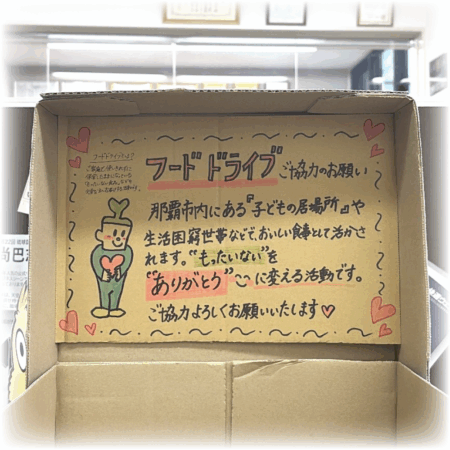 フードドライブとは?
フード ドライブ ご協力のお願い
那覇市内にある『子どもの居場所』や
生活困窮世帯などで、おいしい食事として活かさ
れます。"もったいない"を
"ありがとう"に変える活動です。
ご協力よろしくお願いいたします♡
尚巴